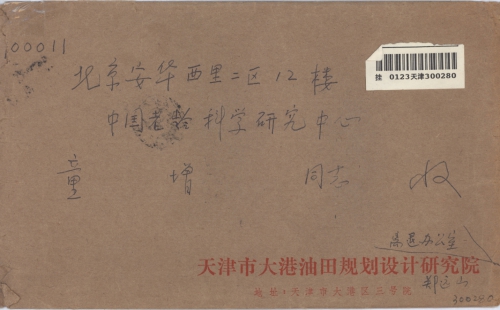 100011
挂 0123天津300280
北京安华西里二区12楼
中国老龄科学研究中心
童增 同志 收
办公室
天津市大港油田规划设计研究院
地址:天津市大港区三号院
郑
300280